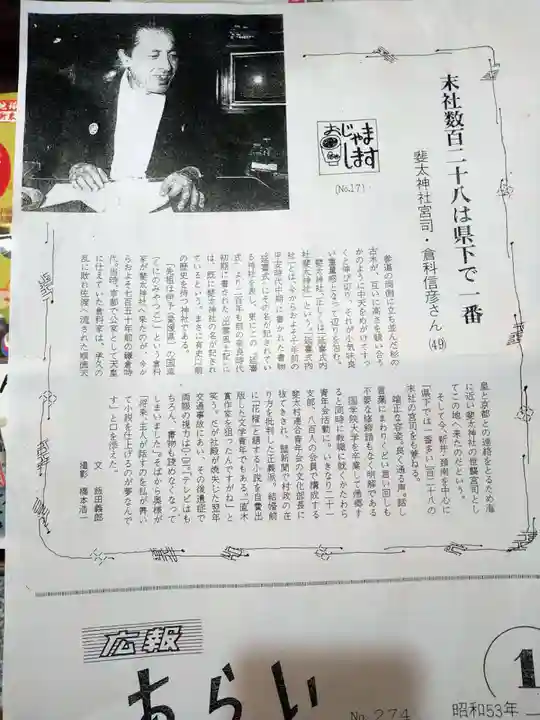 末社数百二十八は県下で一番
斐太神社宮司・倉科信彦さん(49)
おじゃま
します
(No.17)
参道の両側に立ち並んだ杉の
古木が、互いに高さを競い合う
かのように中天をめがけてすっ
くと伸び切り、それが小気味良
い重量感となって辺りを包む。
斐太神社、正しくは「延喜式内
社斐太神社」という。「延喜式内
社」とは、今からおよそ千年前の
平安時代中期に書かれた書物
「延喜式」にその名が記されてい
る神社を表し、更にこの「延喜
式」より二百年も前の奈良時代
初期に書かれた「出雲風土記」に
は、既に斐太神社の名が記され
ているという。まさに有史以前
の歴史を持つ神社である。
「先祖は伊予(愛媛県)の国造
(くにのみやつこ)」という倉科
家が斐太神社へ来たのが、今か
らおよそ七百五十年前の鎌倉時
代。当時、京都で公家として天皇
に仕えていた倉科家は、承久の
乱に敗れ佐渡へ流された順徳天
皇と京都との連絡をとるため海
に近い斐太神社の世襲宮司とし
てこの地へ来たのだという。
そして今、新井、頸南を中心に
「県下では一番多い」百二十八の
末社の宮司をも兼ねる。
端正な容姿、良く通る声。話し
言葉にまわりくどい言い回しも
不要な修飾語もなく明解である
国学院大学を卒業して帰郷す
ると同時に教職に就くかたわら
青年会活動に。いきなり二十一
支部、八百人の会員で構成する
斐太村連合青年会の文化部長に
抜てきされ、壁新聞で村政の在
り方を批判した正義派。結婚前
に「花櫂」と題する小説を自費出
版した文学青年でもある。「直木
賞作家を狙ったんですがね」と
笑う。だが社殿が焼失した翌年
交通事故にあい、その後遺症で
両眼の視力は〇・〇二。テレビはも
ちろん、書物も読めなくなって
しまいました」。そばから奥様が
「将来、主人が話すのを私が書い
て小説を仕上げるのが夢なんで
す」と口を添えた。
文　飯田義郎
撮影　橋本浩一
広報
あらい
No.274
昭和53年
1